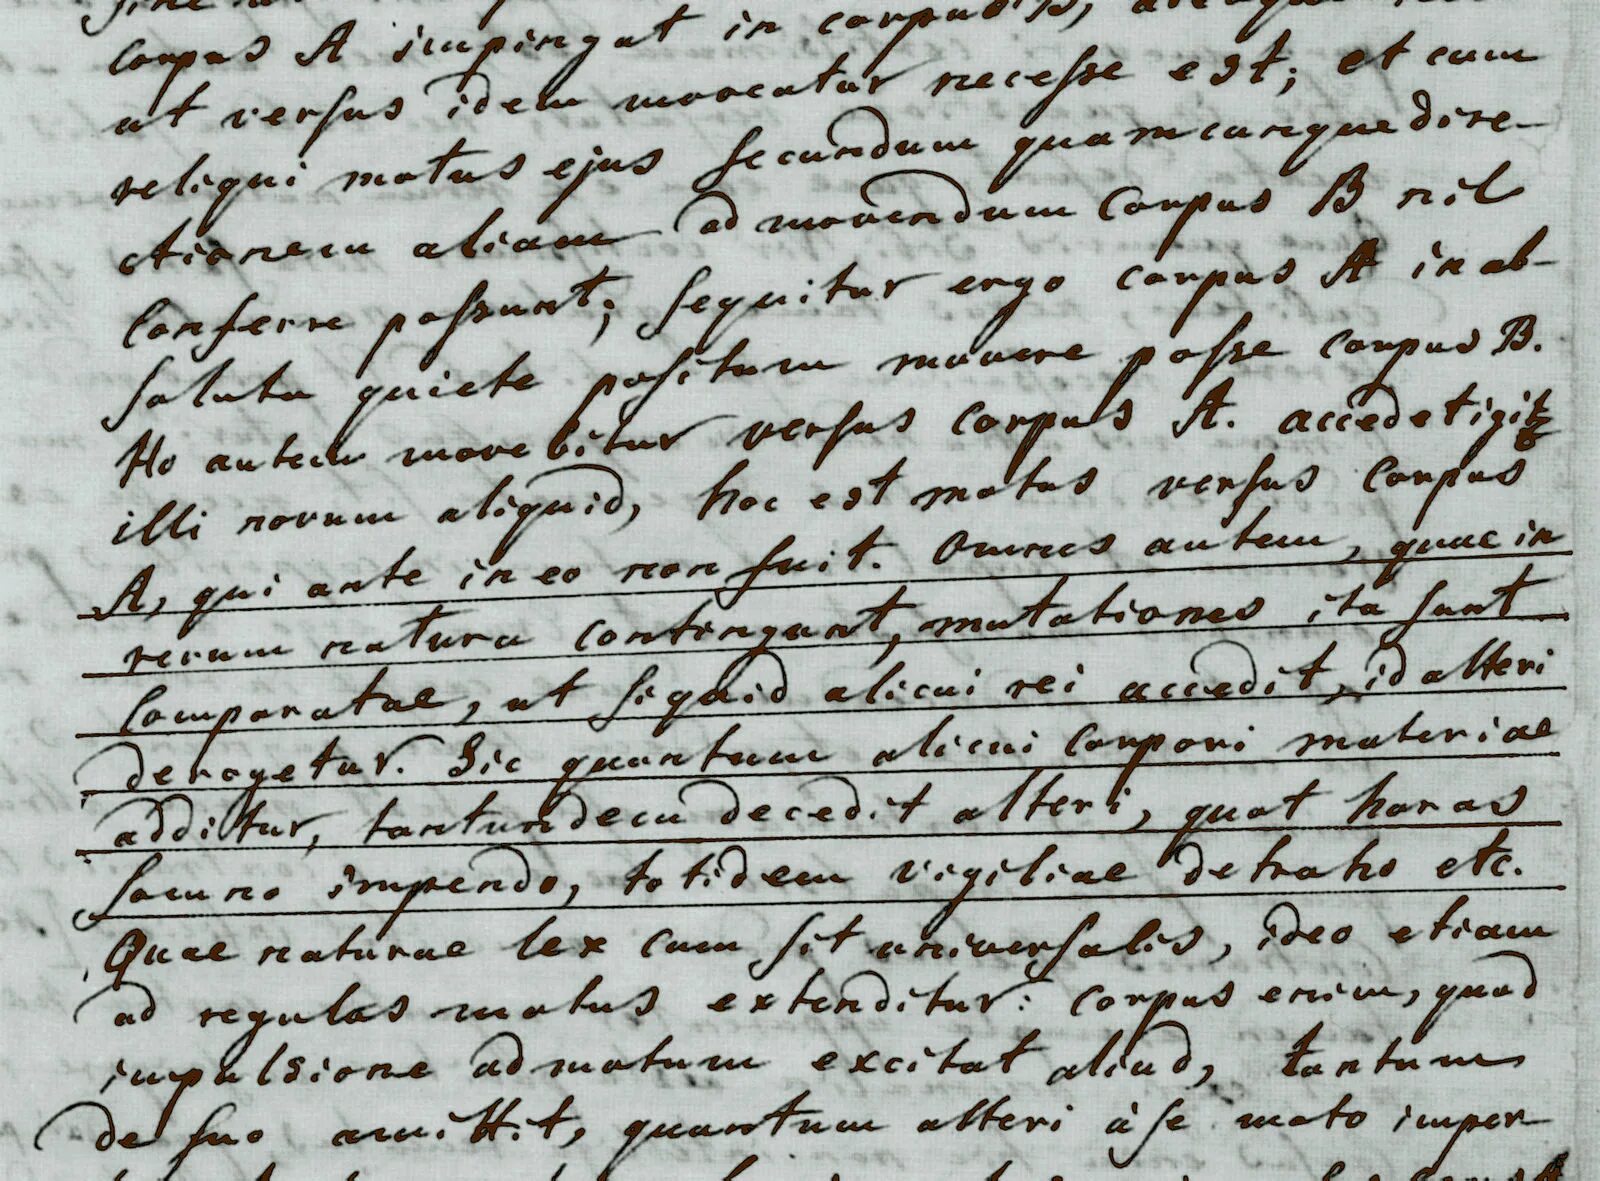 corpus A impingat in corpus B,
ut versus idem moveatur necesse est; et cum
reliqui motus ejus secundum quamcunque dire-
ctionem aliam ad movendum corpus B nil
conferre possunt; sequitur ergo corpus A in ab-
soluta quiete positum movere posse corpus B.
autem movebitur versus corpus A. accedet igitur
illi novum aliquid, hoc est motus versus corpus
A, qui ante in eo non fuit. Omnes autem, quae in
rerum natura contingunt, mutationes ita sunt
comparatae, ut siquid alicui rei accedit, id alteri
derogetur. Sic quantum alicui corpori materiae
additur, tantundem decedit alteri, quot horas
somno impendo, totidem vigiliae detraho etc.
Quae naturae lex cum sit universalis, ideo etiam
ad regulas motus extenditur: corpus enim, quod
impulsione ad motum excitat aliud, tantum
de suo amittit, quantum alteri à se moto imper-